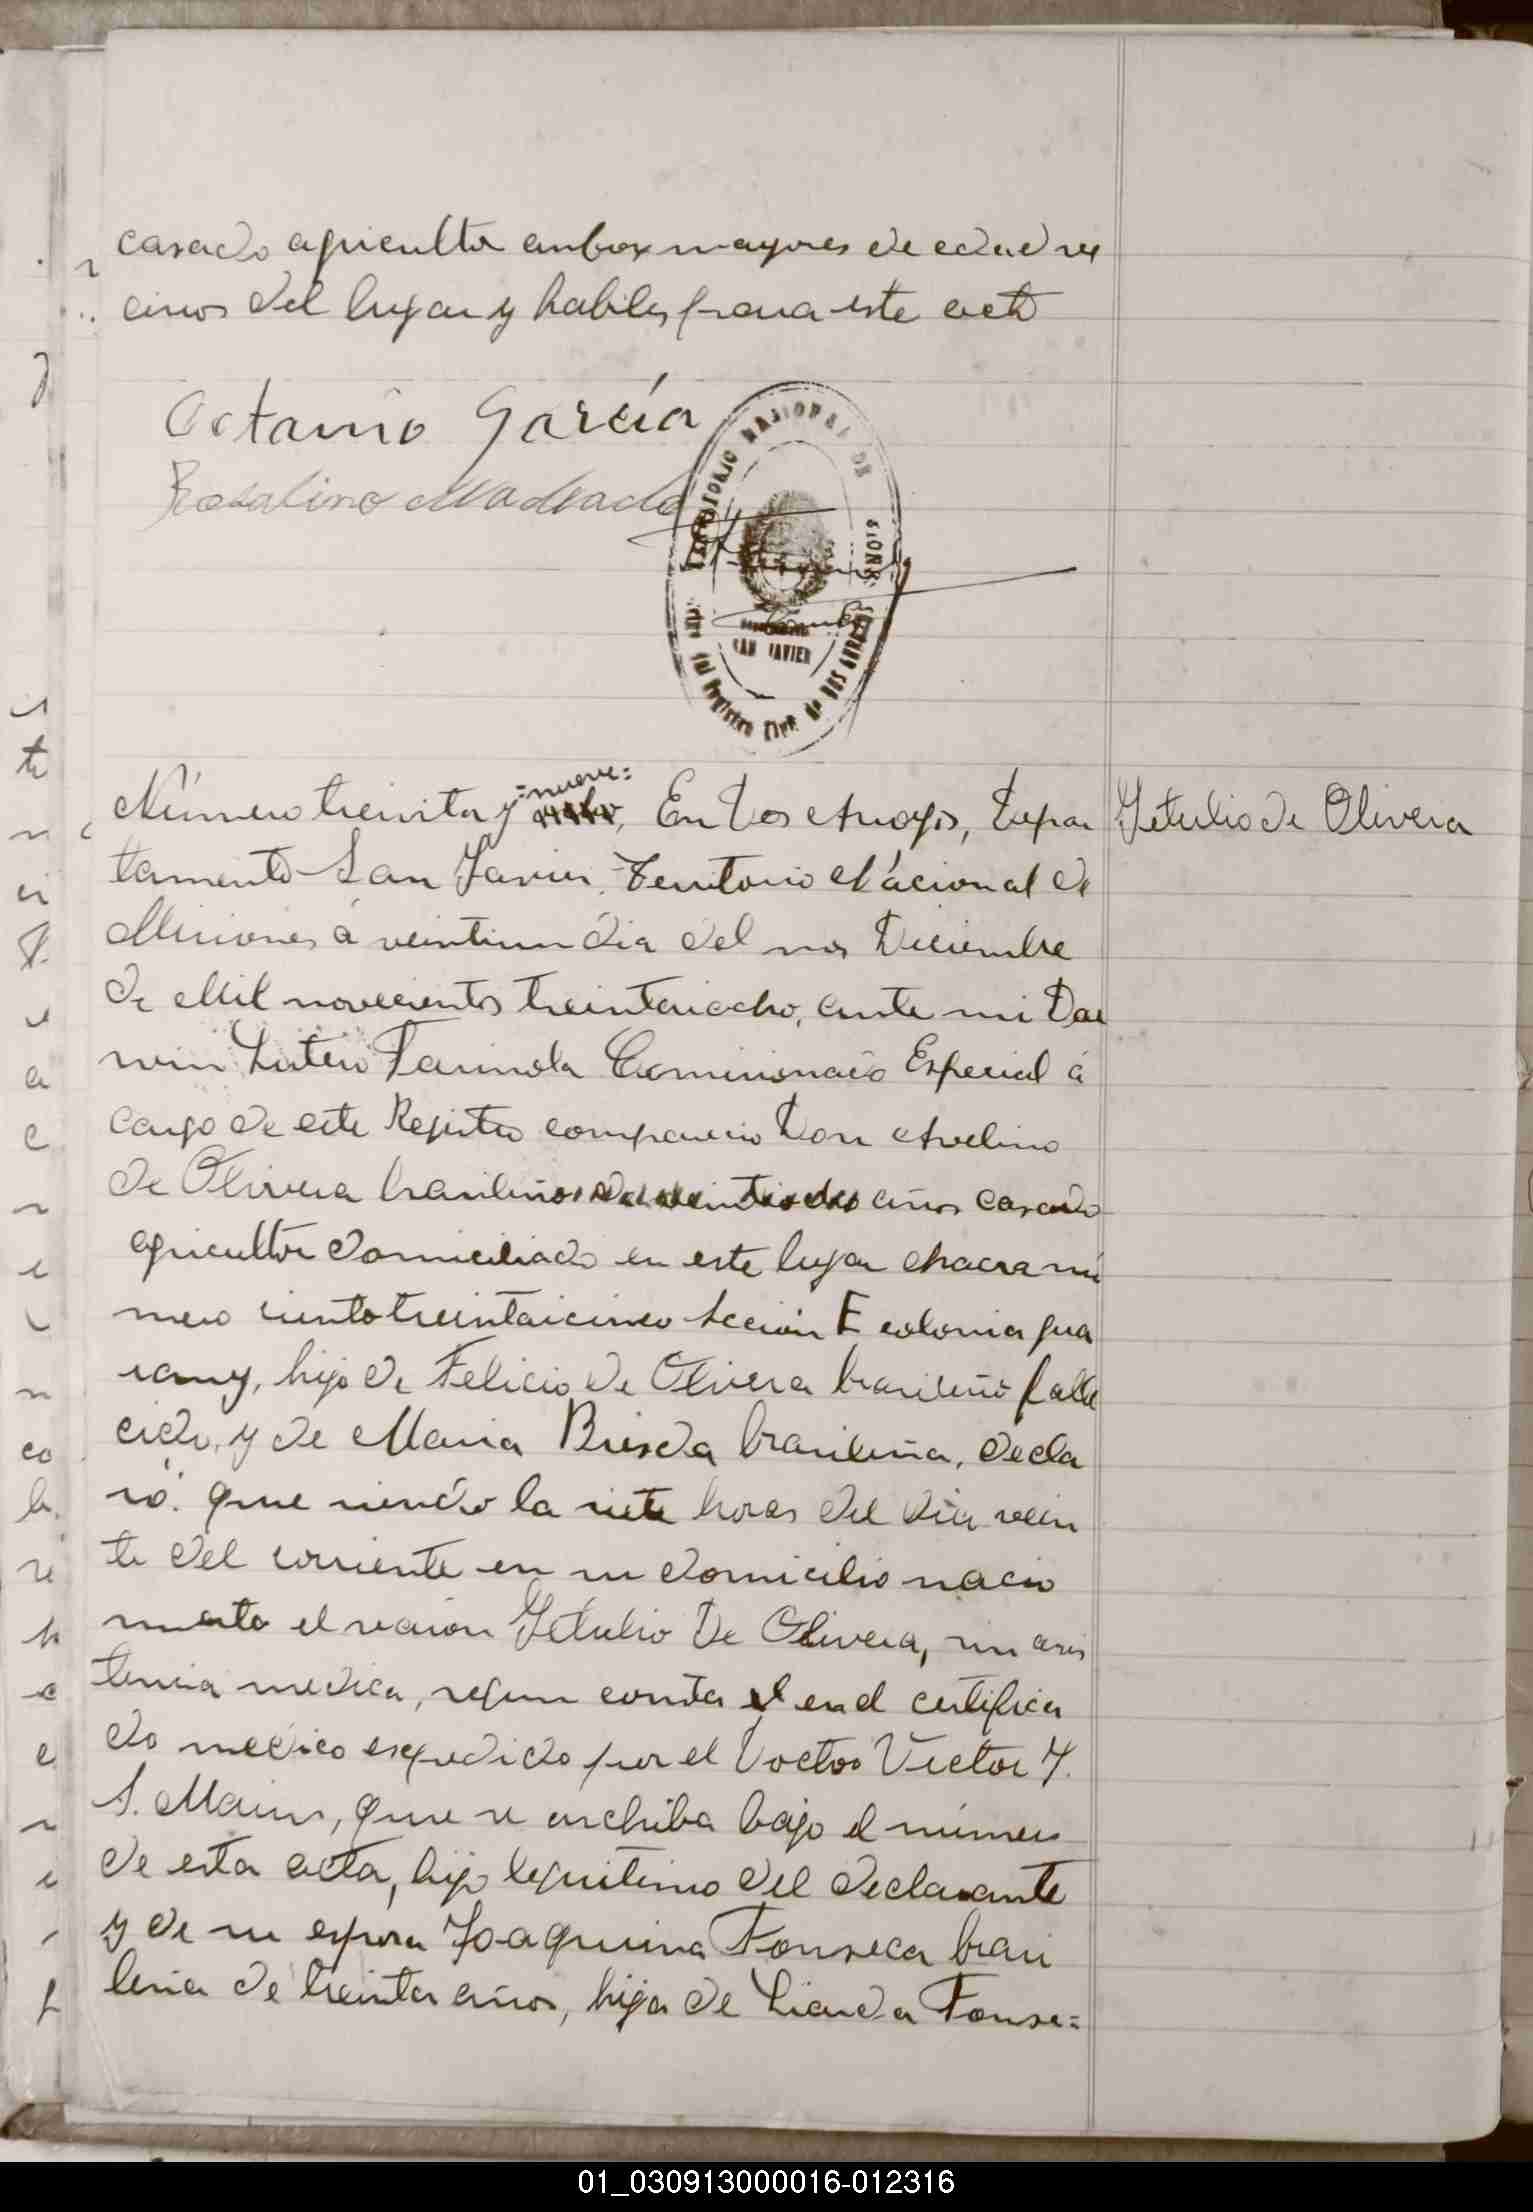 casado agricultor anbos mayores de edad ve
cinos del lugar y habiles para este acto
Octavio García
Rosalino Machado
TERRITORIO NACIONAL DE MISIONES
SAN JAVIER
del Registro Civil de DOS ARROYOS
Número treinta y =nueve= En Dos Arroyos, Depar
Getulio de Olivera
tamento San Javier, Territorio Nacional de
Misiones á veintiun dia del mes Diciembre
de Mil novecientos treintaiocho, ante mi Dar
win Lutero Comisionado Especial á
cargo de este Registro comparecio Don Avelino
de Olivera brasileño, de veintidos años casado
agricultor domiciliado en este lugar chacra nú
mero cientotreintaicinco Sección E colonia gua
rany, hijo de Felicio de Olivera brasileño falle
cido, y de Maria brasileña, decla
ró: que siendo la siete horas del dia vein
te del corriente en su domicilio nacio
muerto el varon Getulio De Olivera, sin asis
tencia medica, segun consta en el certifica
do medico espedido por el Doctor Victor J.
S. que se archiba bajo el número
de esta acta, hijo legitimo del declarante
y de su esposa Joaquina Fonseca brasi
leña de treinta años, hija de Fonse=
01_030913000016-012316